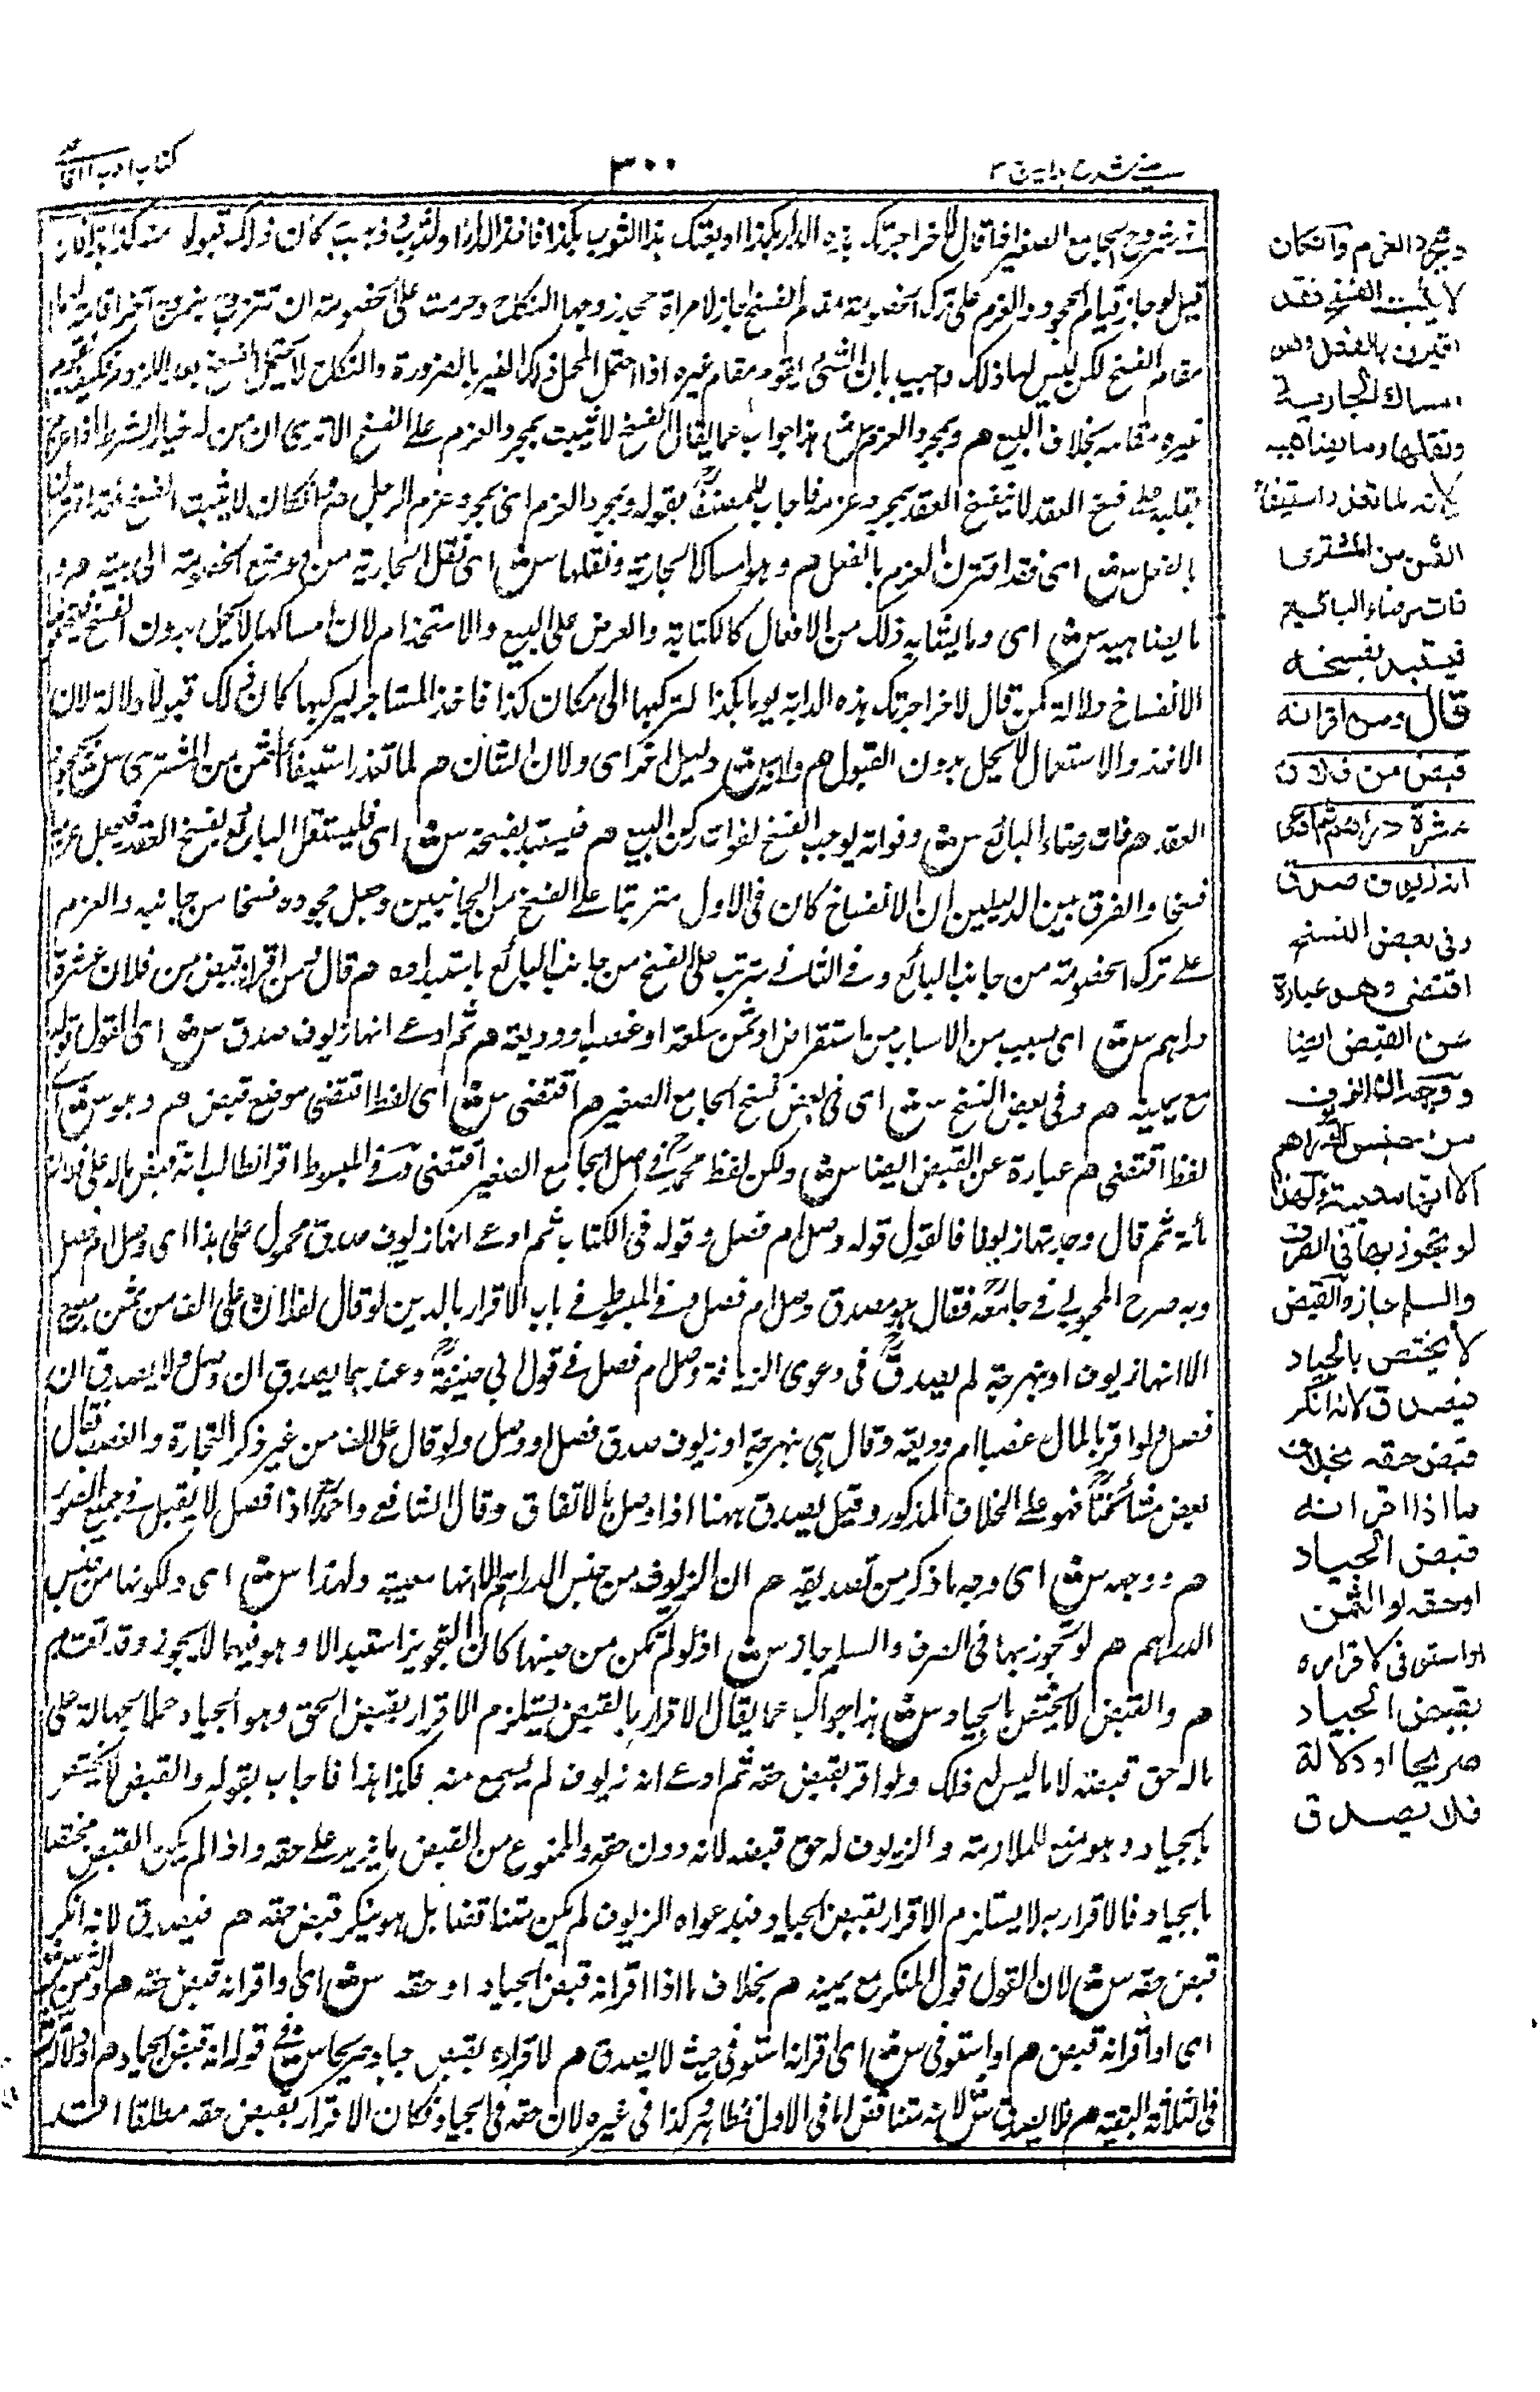 عيني شرح هداية ج ٣
٣٠٠
كتاب ادب القاضى
في شروح الجامع الصغير اذا قال لآخر اجرتك هذه الدار بكذا او بعتك هذا الثوب بكذا فاخذ الدار او الثوب وذهب كان ذلك قبولا منه كذا هذا فان
قيل لو جاز قيام الجحود والعزم على ترك الخصومة مقام الفسخ لجاز لامرأة جحد زوجها النكاح وعزمت على ترك الخصومة ان تتزوج بزوج آخر اقامة لهما
مقام الفسخ لكن ليس لها ذلك واجيب بان الشئ يقوم مقام غيره اذا احتمل المحل ذلك الغير بالضرورة والنكاح لا يحتمل الفسخ بعد اللزوم فكيف يقوم
غيره مقامه بخلاف البيع هم وبمجرد العزم ش هذا جواب عما يقال الفسخ لا يثبت بمجرد العزم على الفسخ الا ترى ان من له خيار الشرط اذا عزم
بقلبه على فسخ العقد لا ينفسخ العقد بمجرد عزمه فاجاب المصنف بقوله وبمجرد العزم اى بمجرد عزم الرجل هم وان كان لا يثبت الفسخ فقد اقترن
بالفعل ش اى فقد اقترن العزم بالفعل هم وهو امساك الجارية ونقلها ش اى نقل الجارية من موضع الخصومة الى بيته هم و
ما يضاهيه ش اى وما يشابه ذلك من الافعال كالكتابة والعرض على البيع والاستخدام لان امساكها لا يحل بدون الفسخ فيتحقق
الانفساخ دلالة كمن قال لآخر اجرتك هذه الدابة يوما بكذا لتركبها الى مكان كذا فاخذ المستاجر ليركبها كان ذلك قبولا دلالة لان
الاخذ والاستعمال لا يحل بدون القبول هم ولانه ش دليل آخر اى ولان الشان هم لما تعذر استيفاء الثمن من المشترى ش بجحود
العقد هم فات رضاء البائع ش وفواته يوجب الفسخ لفوات ركن البيع هم فيستبد بفسخه ش اى فليستقل البائع بفسخ العقد فيجعل عزمه
فسخا والفرق بين الدليلين ان الانفساخ كان فى الاول مترتبا على الفسخ من الجانبين وجعل جحوده فسخا من جانبه والعزم
على ترك الخصومة من جانب البائع وفى الثانى يترتب على الفسخ من جانب البائع باستبداده هم قال ومن اقر انه قبض من فلان عشرة
دراهم ش اى بسبب من الاسباب من استقراض او ثمن سلعة او غصب او وديعة هم ثم ادعى انها زيوف صدق ش اى القول قوله
مع يمينه هم وفى بعض النسخ ش اى فى بعض نسخ الجامع الصغير هم اقتضى ش اى لفظ اقتضى موضع قبض هم وهو ش اى
لفظ اقتضى هم عبارة عن القبض ايضا ش ولكن لفظ محمد فى اصل الجامع الصغير اقتضى وفى المبسوط اقر الطالب انه قبض ماله على فلان
مائة ثم قال وجدتها زيوفا فالقول قوله وصل ام فصل وقوله فى الكتاب ثم ادعى انها زيوف صدق محمول على هذا اى وصل ام فصل
وبه صرح المحبوبى فى جامعه فقال هو مصدق وصل ام فصل وفى المبسوط فى باب الاقرار بالدين لو قال لفلان على الف من ثمن مبيع
الا انها زيوف او نبهرجة لم يصدق فى دعوى الزيافة وصل ام فصل فى قول ابى حنيفة وعندهما يصدق ان وصل ولا يصدق ان
فصل ولو اقر بالمال غصبا ام وديعة وقال هى نبهرجة او زيوف صدق فصل او وصل ولو قال على الف من غير ذكر التجارة والغصب قال
بعض مشائخنا فهو على الخلاف المذكور وقيل يصدق ههنا اذا وصل بالاتفاق وقال الشافعى واحمد اذا فصل لا يقبل فى جميع الصور
هم ووجهه ش اى وجه ما ذكر من تصديقه هم ان الزيوف من جنس الدراهم الا انها معيبة ولهذا ش اى ولكونها من جنس
الدراهم هم لو تجوز بها فى الصرف والسلم جاز ش اذ لو لم تكن من جنسها كان التجويز استبدالا وهو فيهما لا يجوز وقد تقدم
هم والقبض لا يختص بالجياد ش هذا جواب عما يقال الاقرار بالقبض يستلزم الاقرار بقبض الحق وهو الجياد حملا لحاله على
ماله حق قبضه لا ما ليس له ذلك ولو اقر بقبض حقه ثم ادعى انه زيوف لم يسمع منه فكذا هذا فاجاب بقوله والقبض لا يختص
بالجياد وهو منع للملازمة والزيوف له حق قبضه لانه دون حقه والممنوع من القبض ما يزيد على حقه واذا لم يكن القبض مختصا
بالجياد فالاقرار به لا يستلزم الاقرار بقبض الجياد فبدعواه الزيوف لم يكن متناقضا بل هو منكر قبض حقه هم فيصدق لانه انكر
قبض حقه ش لان القول قول المنكر مع يمينه هم بخلاف ما اذا اقر انه قبض الجياد او حقه ش اى او اقر انه قبض حقه هم او الثمن ش
اى او اقر انه قبض هم او استوفى ش اى اقر انه استوفى حيث لا يصدق هم لاقراره بقبض جياد صريحا ش فى قوله انه قبض الجياد هم او دلالة ش
فى الثلاثة البقية هم فلا يصدق ش لانه متناقض اما فى الاول فظاهر وكذا فى غيره لان حقه فى الجياد فكان الاقرار بقبض حقه مطلقا
وبمجرد العزم وان كان
لا يثبت الفسخ فقد
اقترن بالفعل وهو
امساك الجارية
ونقلها وما يضاهيه
لانه لما تعذر استيفاء
الثمن من المشترى
فات رضاء البائع
فيستبد بفسخه
قال ومن اقر انه
قبض من فلان
عشرة دراهم ثم ادعى
انه زيوف صدق
وفى بعض النسخ
اقتضى وهو عبارة
عن القبض ايضا
ووجهه ان الزيوف
من جنس الدراهم
الا انها معيبة ولهذا
لو تجوز بها فى الصرف
والسلم جاز والقبض
لا يختص بالجياد
فيصدق لانه انكر
قبض حقه بخلاف
ما اذا اقر انه
قبض الجياد
او حقه او الثمن
او استوفى لاقراره
بقبض الجياد
صريحا او دلالة
فلا يصدق